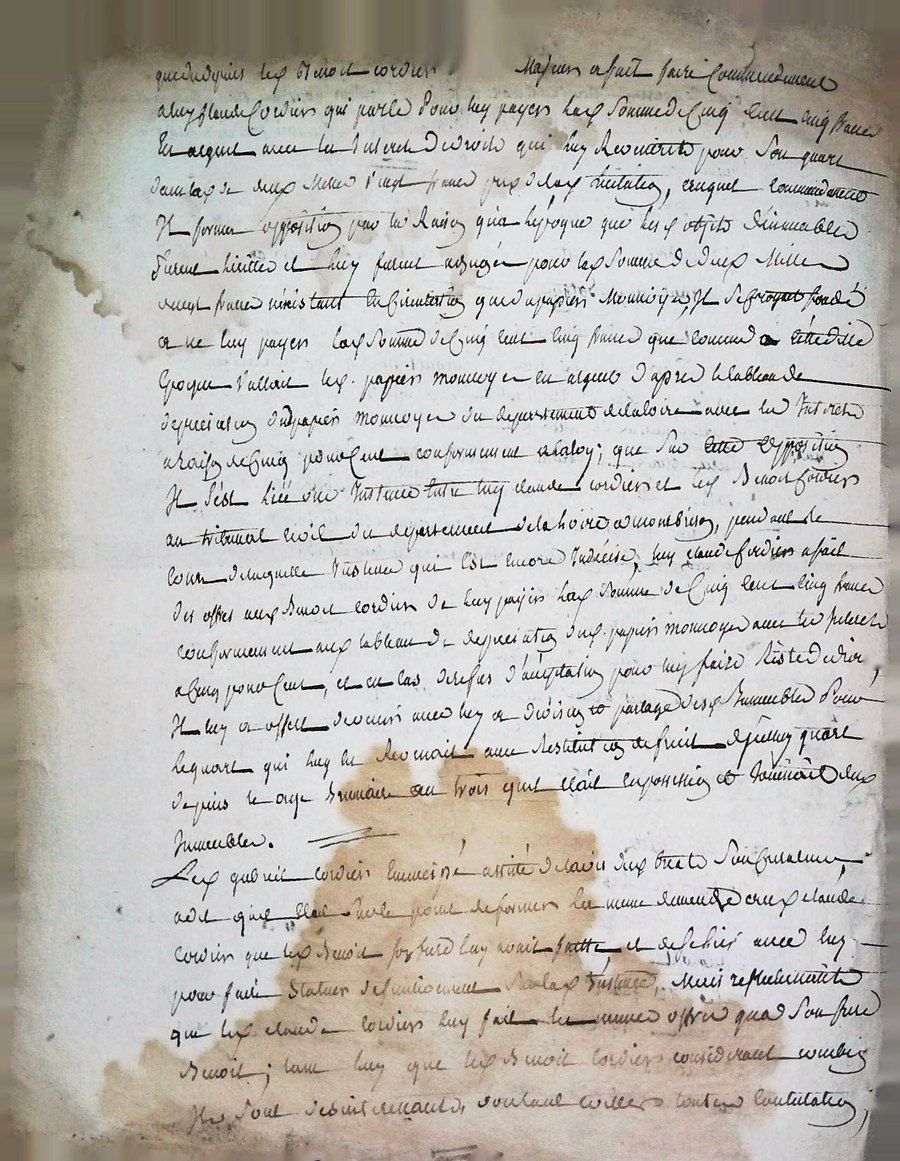 que dudepuis led Benoit cordier Majeur a fait faire Commendement
a luy Claude Cordier qui parle Pour luy payer lad Somme de Cinq Cent cinq francs
En argent avec les Interet de droit qui luy Revenoit pour Son quart
dans lad de deux Mille vingt francs prix de lad licitation, auquel commendement
Il forma opposition par la Raison qu'a l'epoque que lesd objets d'immeubles
furent licités et luy furent adjugés pour lad Somme de deux Mille
vingt francs n'existant En Circulation que du papier Monnoye, Il Se croyait fondé
a ne luy payer lad Somme de Cinq cent cinq francs que comme a cette ditte
Epoque Valloit led papier monnoye en argent d'apres le tableau de
depreciation du papier monnoye du departement de la loire avec les Interets
a Raison de Cinq pour Cent conformement a la loy; que Sur cette opposition
Il S'est liée une Instance Entre luy claude cordier et led Benoit Cordier
au tribunal civil du departement de la loire a montbrison, pendant le
cour de laquelle Instance qui Est encore Indecise, luy claude Cordier a fait
des offres aud Benoit cordier de luy payer lad Somme de Cinq Cent Cinq francs
conformement aud tableau de depreciation dud papier monnoye avec les Interets
a Cinq pour Cent, et en cas de refus d'acceptation pour luy faire
Il luy a offert de venir avec luy a division et partage desd Immeubles Pour
le quart qui luy en Revenoit avec Restitution de fruit dud quart
depuis le age au trois quil etait En possession et Jouissait desd
Immeubles.
Led gabriel cordier Emancipé assisté de l'avis dud Son Curateur,
a dit quil Etait Sur le point de former la meme demande aud claude
cordier que led Benoit Son frere luy avoit faitte, et de Se lier avec luy
pour faire Statuer definitivement Sur lad Instance, Mais reflechissant
que led claude Cordier luy fait les memes offres qu'a Son frere
Benoit; tant luy que led Benoit Cordier considerant combien
Ils Sont voulant Eviter toutes Contestation,